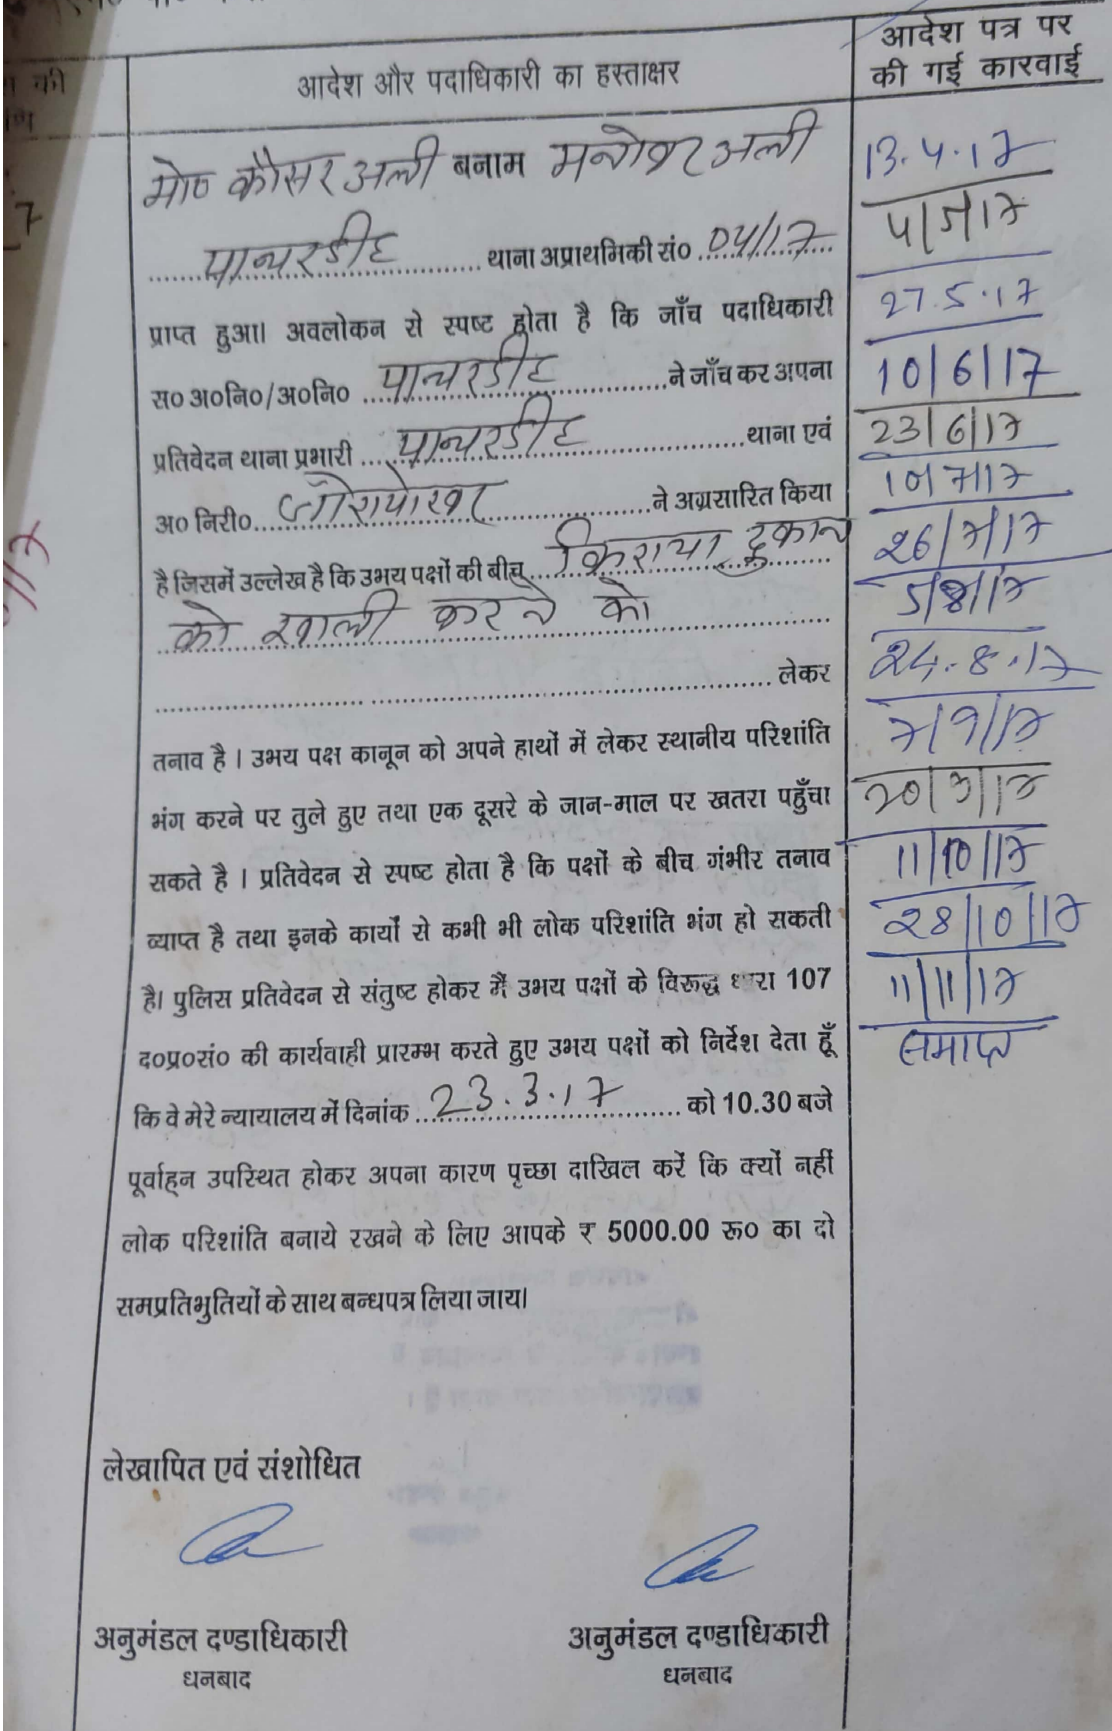 की
आदेश और पदाधिकारी का हस्ताक्षर
आदेश पत्र पर
की गई कारवाई
मो० कौसर अली बनाम मनोवर अली
7
पान्चरडीह थाना अप्राथमिकी सं० 04/17
प्राप्त हुआ। अवलोकन से स्पष्ट होता है कि जाँच पदाधिकारी
स० अ०नि०/अ०नि० पान्चरडीह ने जाँच कर अपना
प्रतिवेदन थाना प्रभारी पान्चरडीह थाना एवं
अ० निरी० ने अग्रसारित किया
है जिसमें उल्लेख है कि उभय पक्षों की बीच किराया दुकान
को खाली करने को
लेकर
तनाव है । उभय पक्ष कानून को अपने हाथों में लेकर स्थानीय परिशांति
भंग करने पर तुले हुए तथा एक दूसरे के जान-माल पर खतरा पहुँचा
सकते है । प्रतिवेदन से स्पष्ट होता है कि पक्षों के बीच गंभीर तनाव
व्याप्त है तथा इनके कार्यों से कभी भी लोक परिशांति भंग हो सकती
है। पुलिस प्रतिवेदन से संतुष्ट होकर मैं उभय पक्षों के विरूद्ध धारा 107
द०प्र०सं० की कार्यवाही प्रारम्भ करते हुए उभय पक्षों को निर्देश देता हूँ
कि वे मेरे न्यायालय में दिनांक 23.3.17 को 10.30 बजे
पूर्वाह्न उपस्थित होकर अपना कारण पृच्छा दाखिल करें कि क्यों नहीं
लोक परिशांति बनाये रखने के लिए आपके ₹ 5000.00 रू० का दो
समप्रतिभुतियों के साथ बन्धपत्र लिया जाय।
लेखापित एवं संशोधित
अनुमंडल दण्डाधिकारी
धनबाद
अनुमंडल दण्डाधिकारी
धनबाद
13.4.17
4/5/17
27.5.17
10/6/17
23/6/17
10/7/17
26/7/17
5/8/17
24.8.17
7/9/17
20/9/17
11/10/17
28/10/17
11/11/17
समाप्त